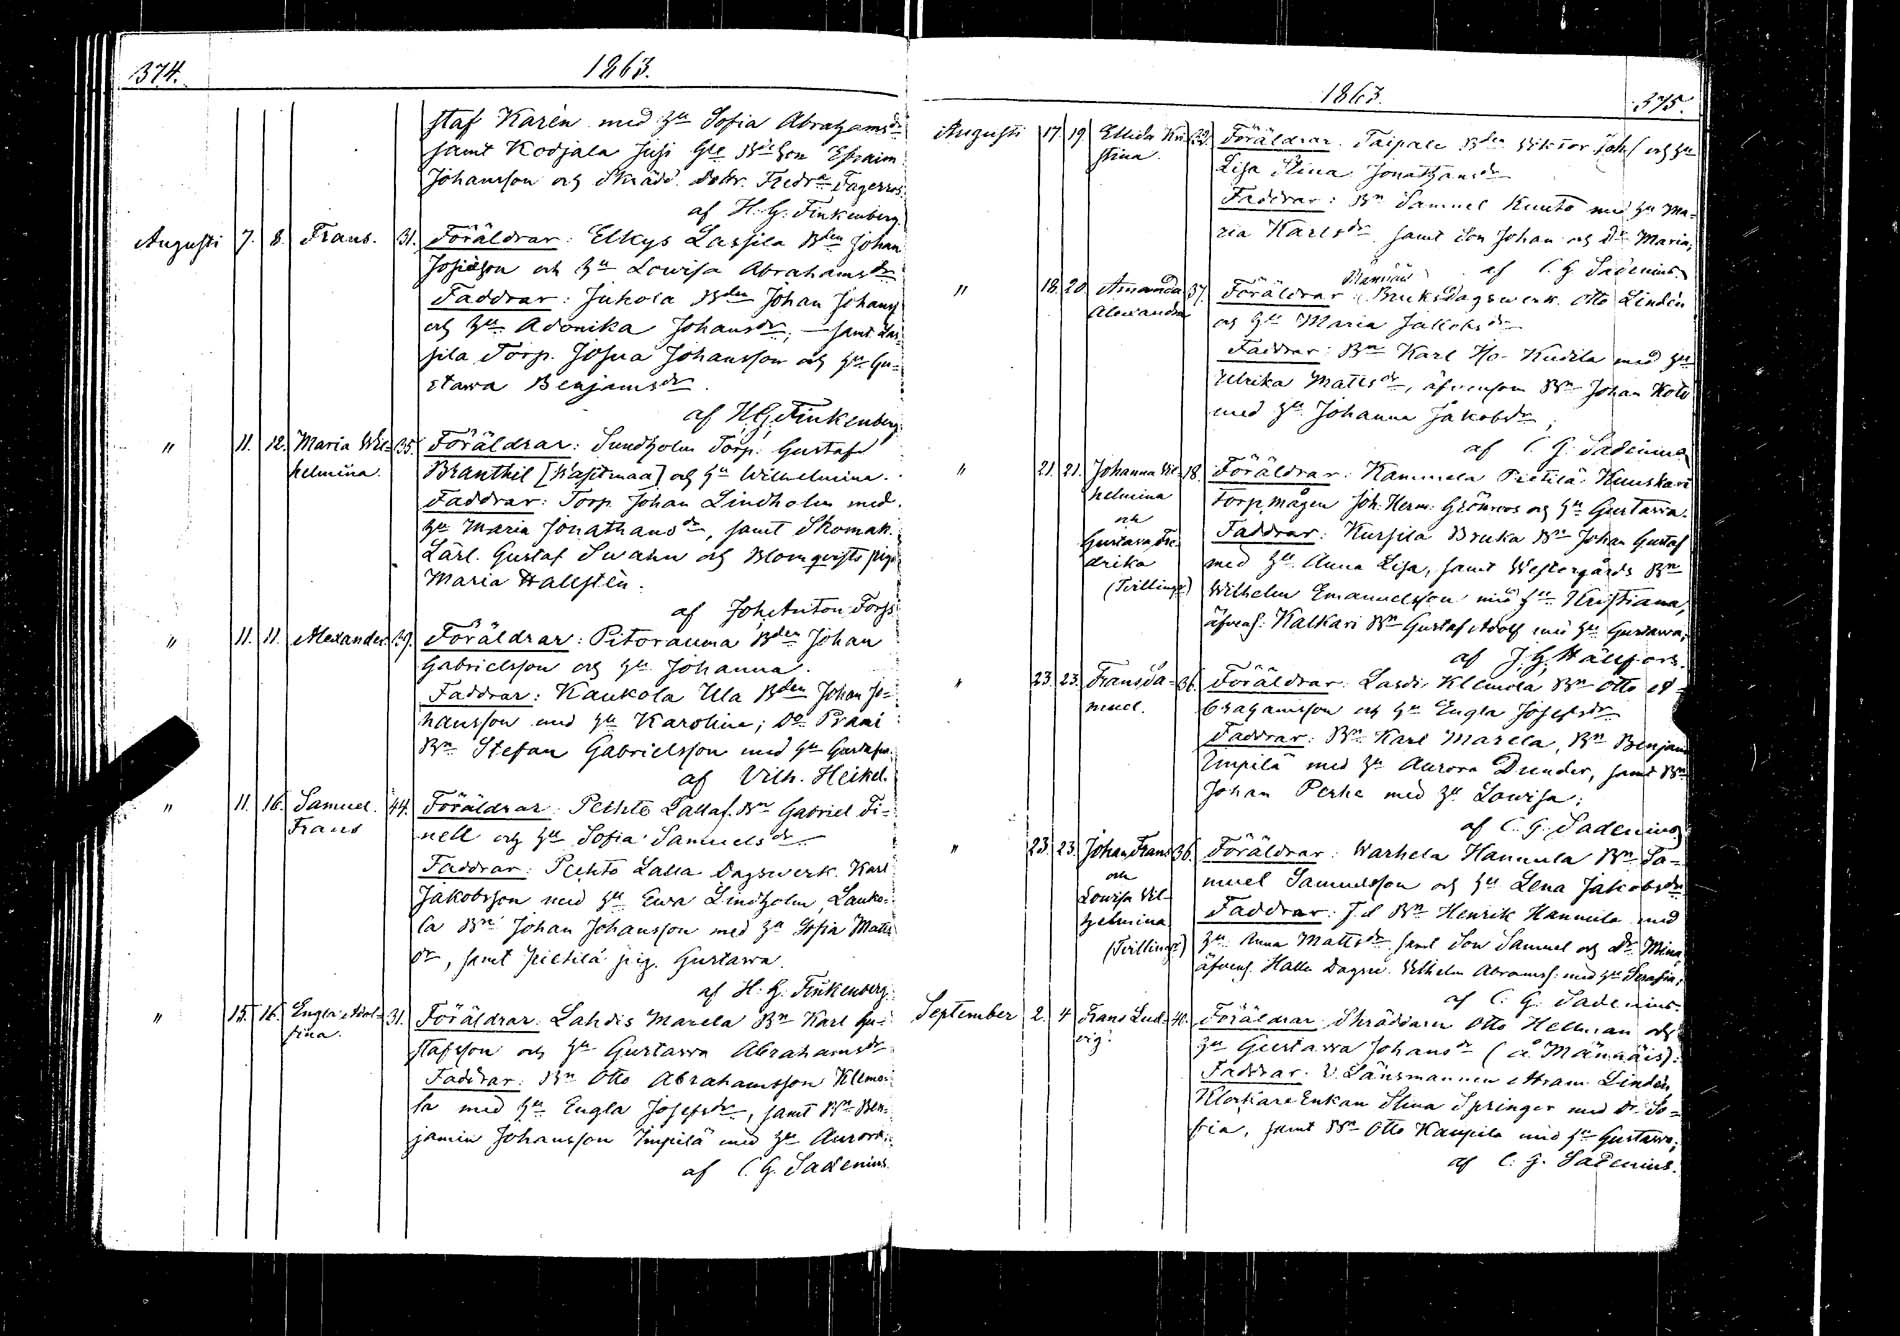 374. 1863.
staf Karén med hu Sofia Abrahamsdr
samt Kodjala Susi Gle Bdeson Efraim
Johansson och Skrädd. dottr. Fredra Fagerros
af H. G. Finkenberg
Augusti 7. 8. Frans. 31. Föräldrar: Elkys Lassila Bden Johan
Josiæson och hu Lowisa Abrahamsdr
Faddrar: Juhola Bden Johan Johanss
och hu Adonika Johansdr, samt Las-
sila Torp. Josua Johansson och hu Gu-
stawa Benjamsdr.
af H G Finkenberg
" 11. 12. Maria Wil- 35. Föräldrar: Sundholm Torp. Gustaf
helmina. Branthil [Wasitmaa] och hu Wilhelmina.
Faddrar: Torp. Johan Lindholm med
hu Maria Jonathansdr, samt Skomak.
Lärl. Gustaf Swahn och Blomqvists pig.
Maria Hallstèn.
af Joh. Anton Forss
" 11. 11. Alexander 39. Föräldrar: Pitorauma Bden Johan
Gabrielsson och hu Johanna.
Faddrar: Kaukola Ula Bden Johan Jo-
hansson med hu Karolina; Do Prami
Bn Stefan Gabrielsson med hu Gustafva.
af Vilh. Heikel.
" 11. 16. Samuel 44. Föräldrar: Pehto Lallaf. Bn Gabriel Fi-
Frans nell och hu Sofia Samuelsdr
Faddrar: Pehto Lalla Dagswerk. Karl
Jakobsson med hu Ewa Lindholm, Lauko-
la Bn Johan Johansson med hu Sofia Matts
dr, samt Pietilä pig. Gustawa.
af H. G. Finkenberg
" 15. 16. Engla Adol- 31. Föräldrar: Lahdis Marela Bn Karl Gu-
fina. stafsson och hu Gustawa Abrahamsdr
Faddrar: Bn Otto Abrahamsson Klemo-
la med hu Engla Josefsdr, samt Bn Ben-
jamin Johansson Impilä med hu Aurora.
af C. G. Sadenius
1863. 375.
Augusti 17. 19. Elida Kri- 22. Föräldrar: Taipale Bden Wiktor Johs och hu
stina. Lisa Stina Jonathansdr
Faddrar: Bn Samuel Kuuto med hu Ma-
ria Karlsdr samt son Johan och Dr Maria,
af C. G. Sadenius.
" 18. 20. Amanda 37. Föräldrar: Männäis Bruksdagswerk. Otto Lindén
Alexandra och hu Maria Jakobsdr
Faddrar: Bn Karl Iso-Kudila med hu
Ulrika Mattsdr, äfvensom Bn Johan Koto
med hu Johanna Jakobsdr,
af C. G. Sadenius
" 21. 21. Johanna Wil- 18. Föräldrar: Kammela Pietilä Kuuskari
helmina Torp. mågen Joh. Herm. Grönroos och hu Gustawa.
och Faddrar: Kursila Bruka Bn Johan Gustaf
Gustava Fre- med hu Anna Lisa, samt Westergårds Bn
drika Wilhelm Emanuelsson med hu Kristiana,
(Tvillingr) äfvens. Kalkari Bn Gustaf Adolf med hu Gustawa,
af J. G. Hällfors.
" 23. 23. Frans Sa- 36. Föräldrar: Lardi, Klemola Bn Otto A-
muel. brahamsson och hu Engla Josefsdr
Faddrar: Bn Karl Marela, Bn Benjam
Impilä med hu Aurora Dunder, samt Bn
Johan Perhe med hu Lowisa;
af C. G. Sadenius
" 23. 23. Johan Frans 36. Föräldrar: Warhela Hannula Bn Sa-
och muel Samuelsson och hu Lena Jakobsdr
Lowisa Vil- Faddrar: Bn Henrik Hannula med
helmina hu Anna Mattsdr samt Son Samuel och Dr Mina,
(Tvillingr) äfvens. Halla Dagsw. Vilhelm Abramss: med hu Serafia;
af C. G. Sadenius.
September 2. 4 Frans Lud- 40. Föräldrar: Skräddarn Otto Hellman och
vig. hu Gustawa Johansdr (å Männäis):
Faddrar: V. Länsmannen Abram Lindén,
Klockare Enkan Stina Springer med dr. So-
fia, samt Bn Otto Kaupila med hu Gustawa;
af C. G. Sadenius.